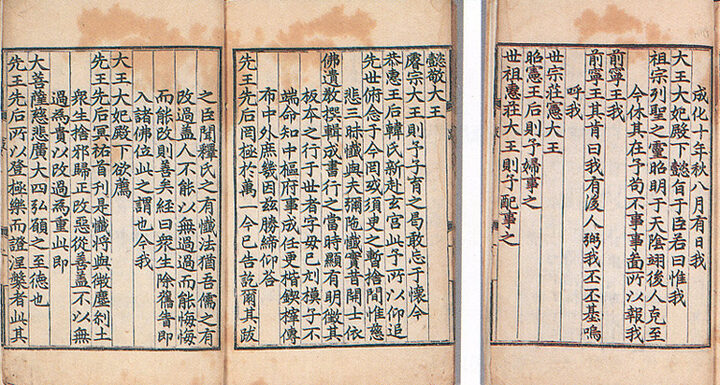 成化十年秋八月有日我
大王大妃殿下懿旨于臣若曰惟我
祖宗列聖之靈昭明于天陰翊後人克至
今休其在予苟不事事啚所以報我
前寧王我
前寧王其肯曰我有後人弼我丕丕基嗚
呼我
世宗莊憲大王
昭憲王后則予婦事之
世祖惠莊大王則予配事之
懿敬大王
睿宗大王則予子育之曷敢忘于懷今
恭惠王后韓氏新赴玄宮此予所以仰追
先世俯念于今罔或須臾之暫捨間惟慈
悲三昧懺與夫彌陁懺實昔開士依
佛遺教撰輯成書行之當時顯有明徵其
板本之行于世者字毋已刓模子不
端命知中樞府事成任更楷鋟榟傳
布中外庶幾因玆勝締仰答
先王先后罔極於萬一今已告訖爾其跋
之臣聞釋氏之有懺法猶吾儒之有
改過盖人不能以無過過而能悔悔
而能改則善矣經曰衆生除舊眚即
入諸佛位此之謂也今我
大王大妃殿下欲薦
先王先后冥祐首刊是懺將與微塵刹土
衆生捨邪歸正改惡從善盖不以無
過為貴以改過為重此即
大菩薩慈悲廣大四弘願之至德也
先王先后所以登極樂而證涅槃者此其